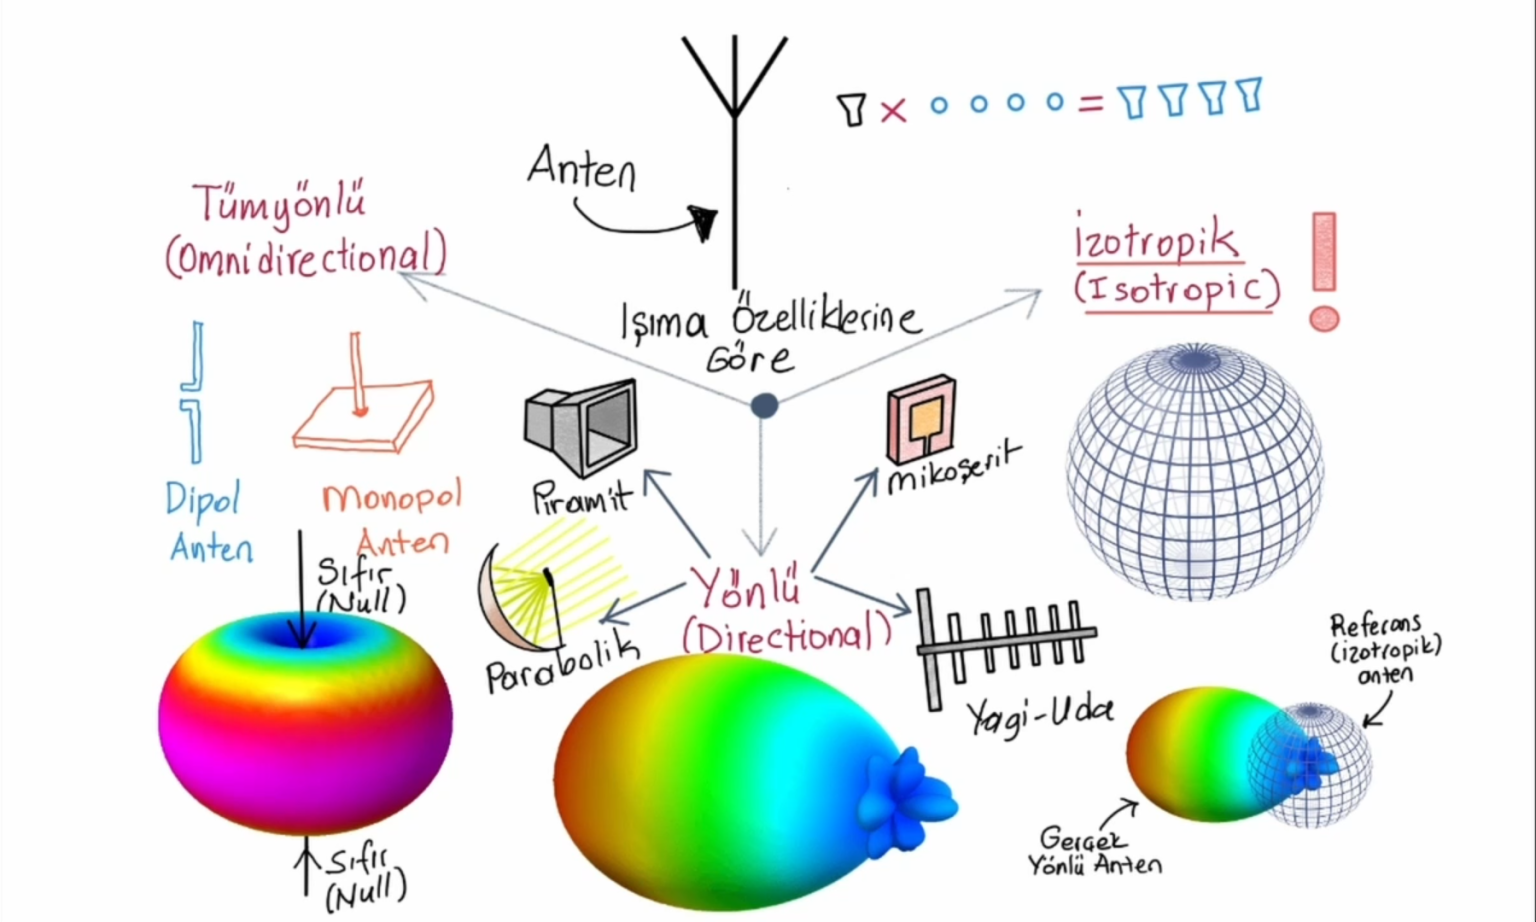 Anten
Tümyönlü
(Omnidirectional)
İzotropik
(Isotropic)
Işıma Özelliklerine
Göre
Dipol
Anten
Monopol
Anten
Piramit
Mikoşerit
Sıfır
(Null)
Yönlü
(Directional)
Parabolik
Yagi-Uda
Referans
(izotropik)
anten
Gerçek
Yönlü Anten
Sıfır
(Null)